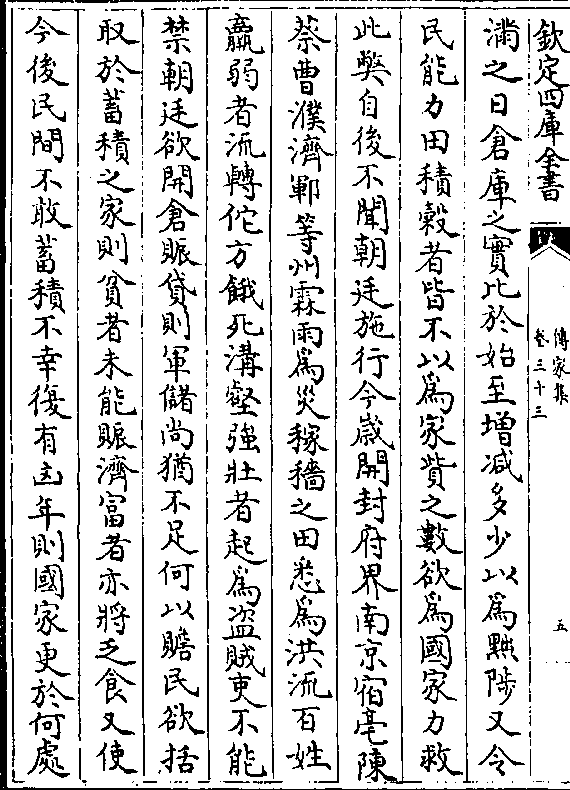 欽定四庫全書
傳家集
卷三十三
五
滿之日倉庫之實比於始至增減多少以為黜陟又令
民能力田積穀者皆不以為家貲之數欲為國家力救
此弊自後不聞朝廷施行今歲開封府界南京宿亳陳
蔡曹濮濟鄆等州霖雨為災稼穡之田悉為洪流百姓
羸弱者流轉佗方餓死溝壑強壯者起為盜賊吏不能
禁朝廷欲開倉賑貸則軍儲尚猶不足何以贍民欲括
取於蓄積之家則貧者未能賑濟富者亦將乏食又使
今後民間不敢蓄積不幸復有凶年則國家更於何處